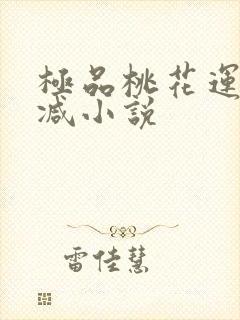 極品桃花運
减小説
雷佳慧